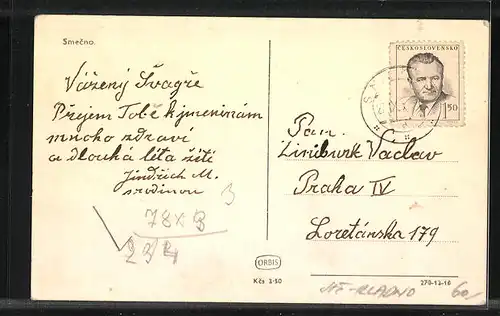 Smečno.
ČESKOSLOVENSKO
1.50
Vážený Švagře
Přejem Tobě k jmeninám
mnoho zdraví
a dlouhá léta žití
Jindřich M.
s rodinou
3
78x3
234
Pan.
Liniburk Vaclav
Praha IV
Loretánska 179
ORBIS
Kčs 3·50
270-13-16
NF-KLADNO
60,-